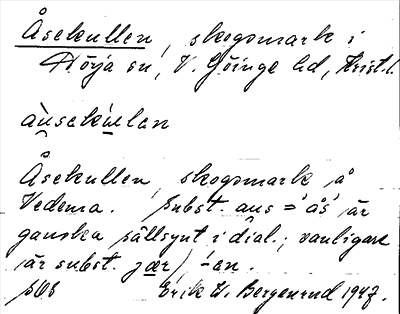 Åsekullen, skogsmark i
Hörja sn, V. Göinge hd, Krist.l.
aùsekùlan
Åsekullen, skogsmark å
Vedema. Subst. aus = 'ås' är
ganska sällsynt i dial.; vanligare
är subst. jær), -en.
Erik W. Bergenrud 1947.